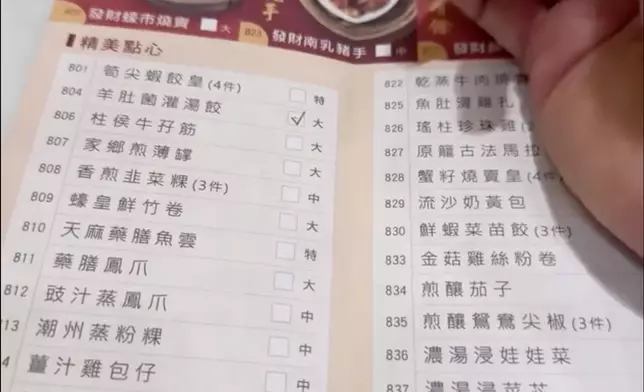 發財蠔市燒賣 大
823 發財南乳豬手 中
精美點心
801 筍尖蝦餃皇(4件) 特
804 羊肚菌灌湯餃 大
806 柱侯牛孖筋 大
807 家鄉煎薄罉 大
808 香煎韭菜粿(3件) 中
809 蠔皇鮮竹卷 大
810 天麻藥膳魚雲 特
811 藥膳鳳爪 大
812 豉汁蒸鳳爪 中
13 潮州蒸粉粿 中
4 薑汁雞包仔 中
822 乾蒸牛肉燒賣
825 魚肚灣雞扎
826 瑤柱珍珠雞
827 原籠古法馬拉
828 蟹籽燒賣皇(4件)
829 流沙奶黃包
830 鮮蝦菜苗餃(3件)
833 金菇雞絲粉卷
834 煎釀茄子
835 煎釀鴛鴦尖椒(3件)
836 濃湯浸娃娃菜
837